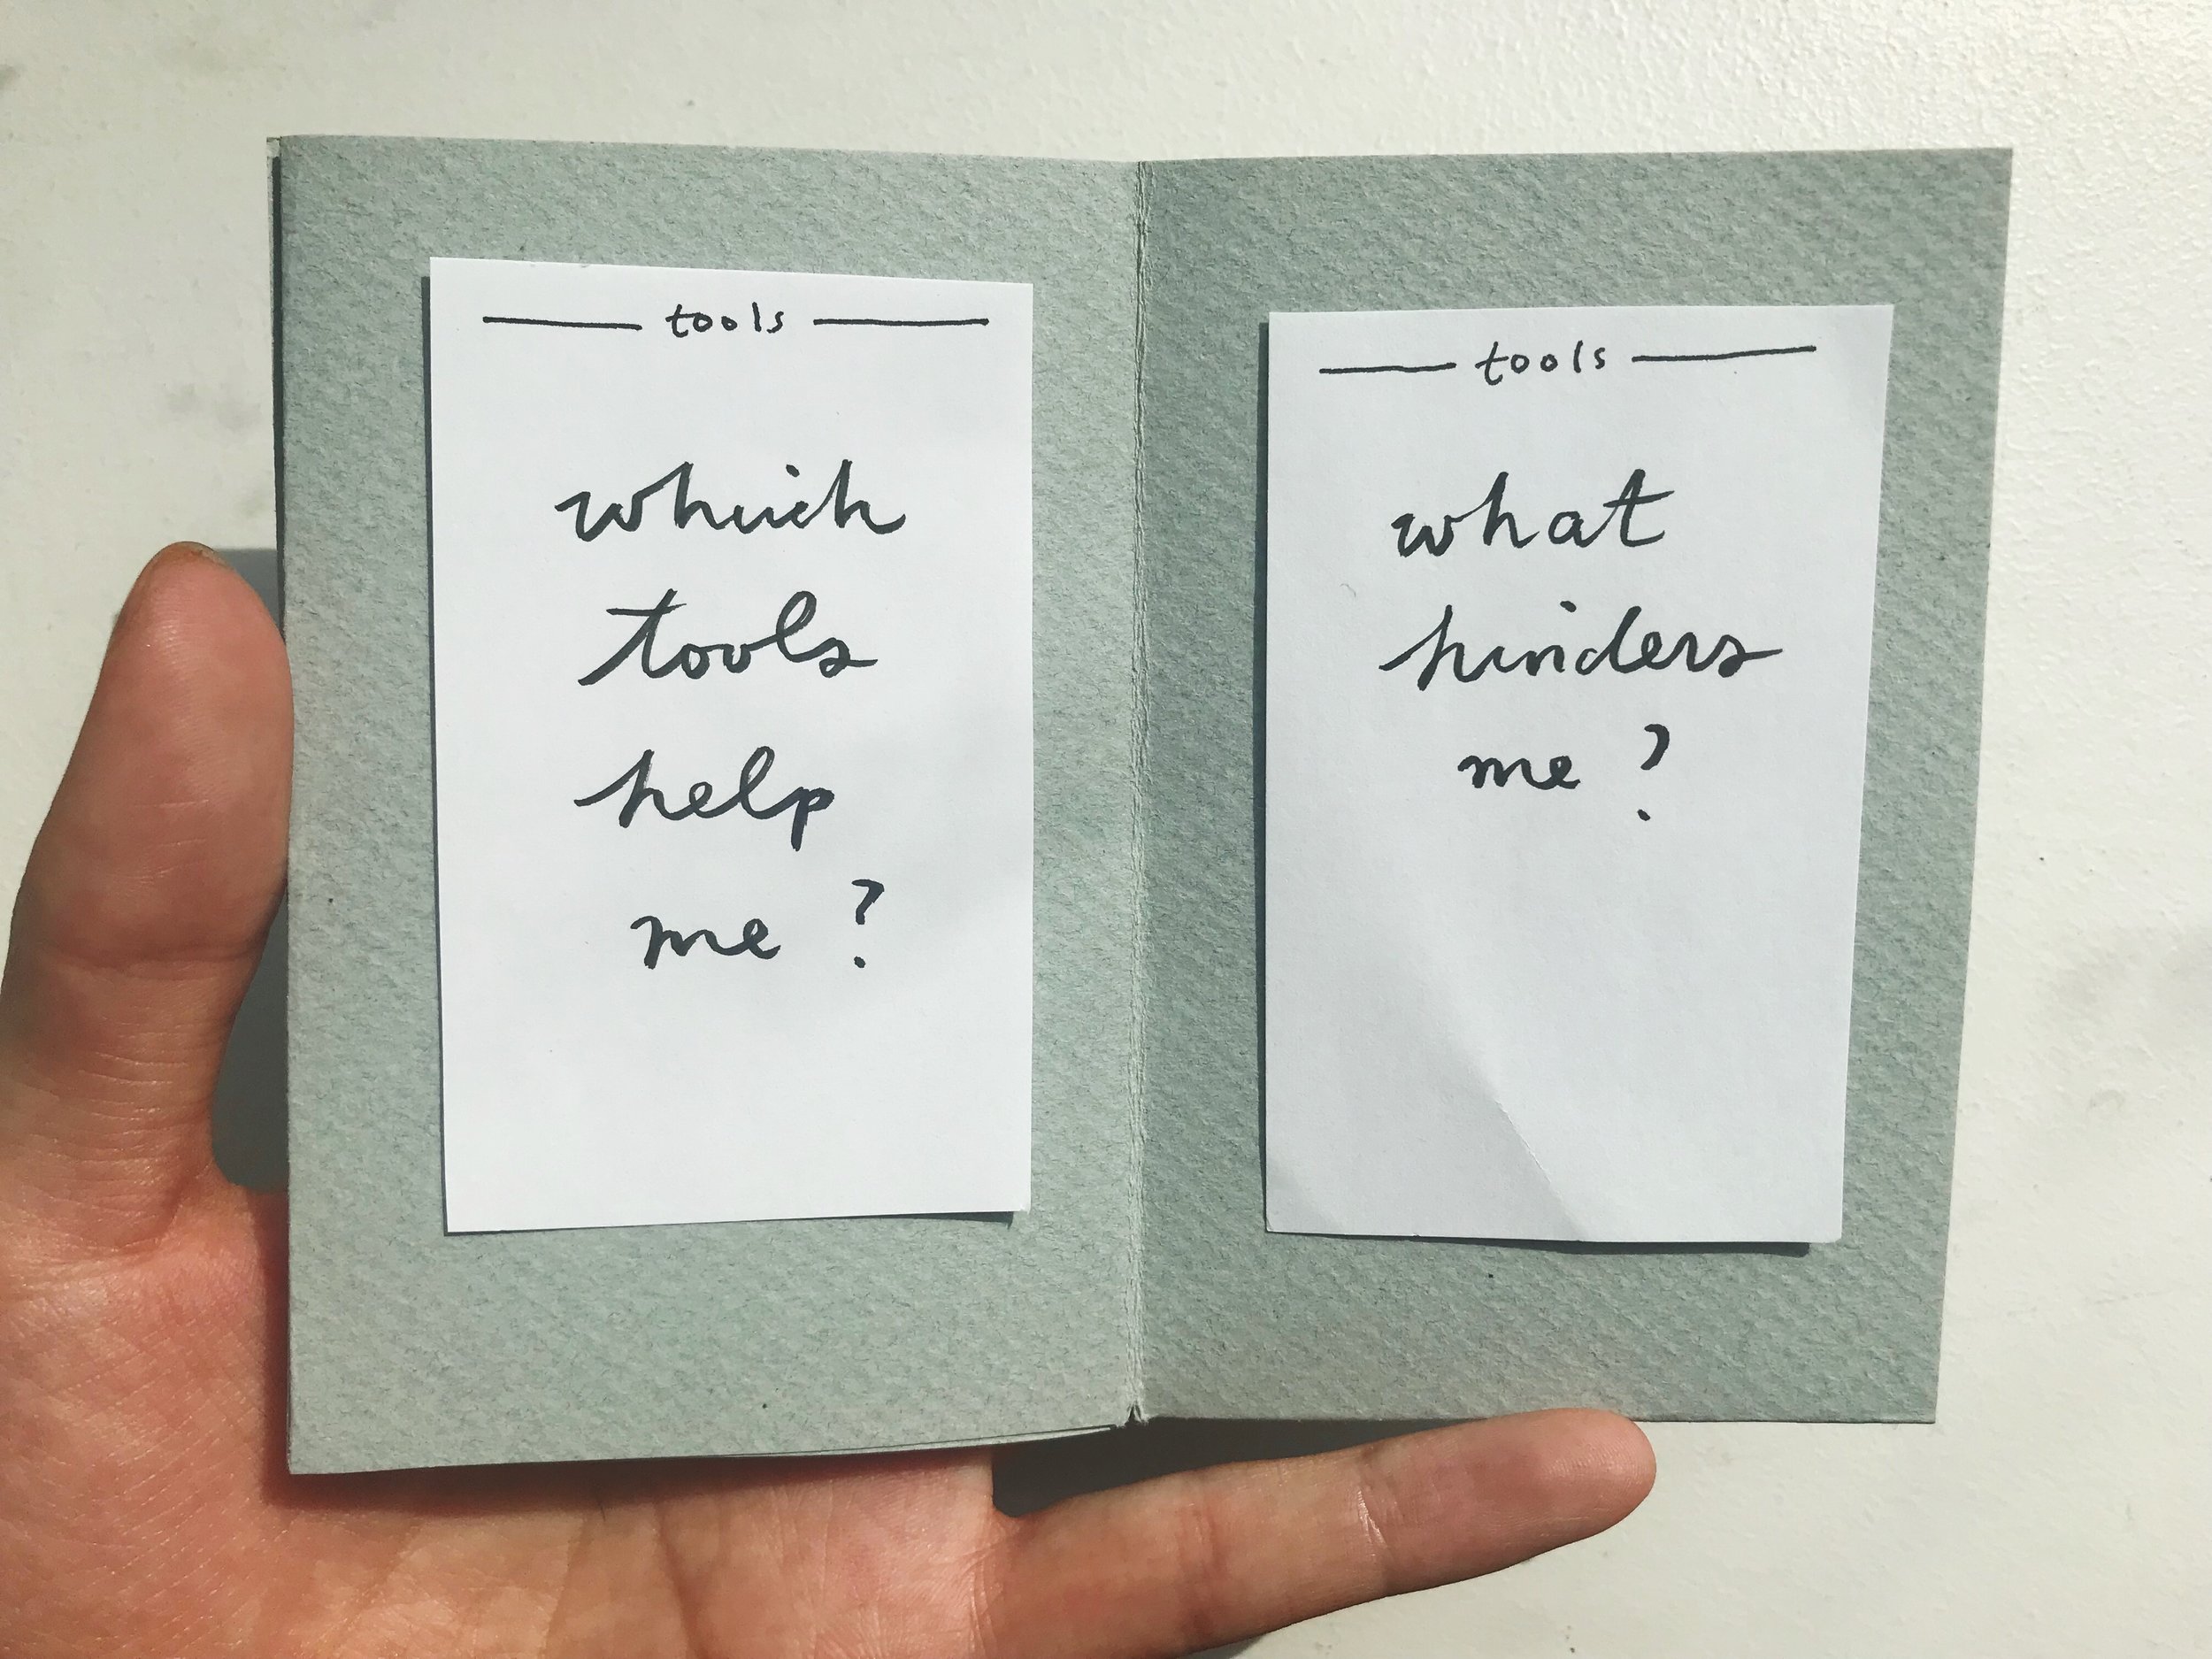 tools
which
tools
help
me ?
tools
what
hinders
me ?